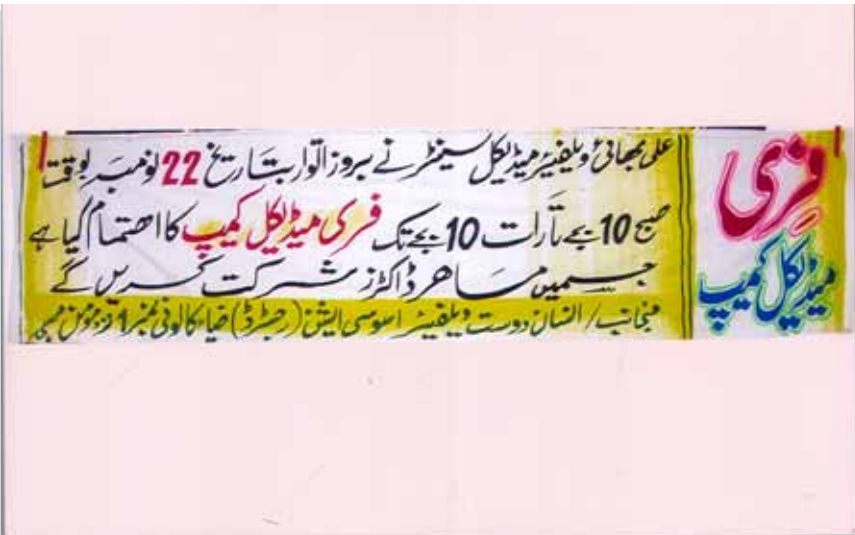 فری
میڈیکل کیمپ
علی بھائی ویلفیئر میڈیکل سینٹر نے بروز اتوار بتاریخ 22 نومبر بوقت
صبح 10 بجے تا رات 10 بجے تک فری میڈیکل کیمپ کا اھتمام کیا ہے
جسمیں ماھر ڈاکٹرز شرکت کریں گے
منجانب / انسان دوست ویلفیئر اسوسی ایشن (رجسٹرڈ) ضیاء کالونی نمبر 1 نزد